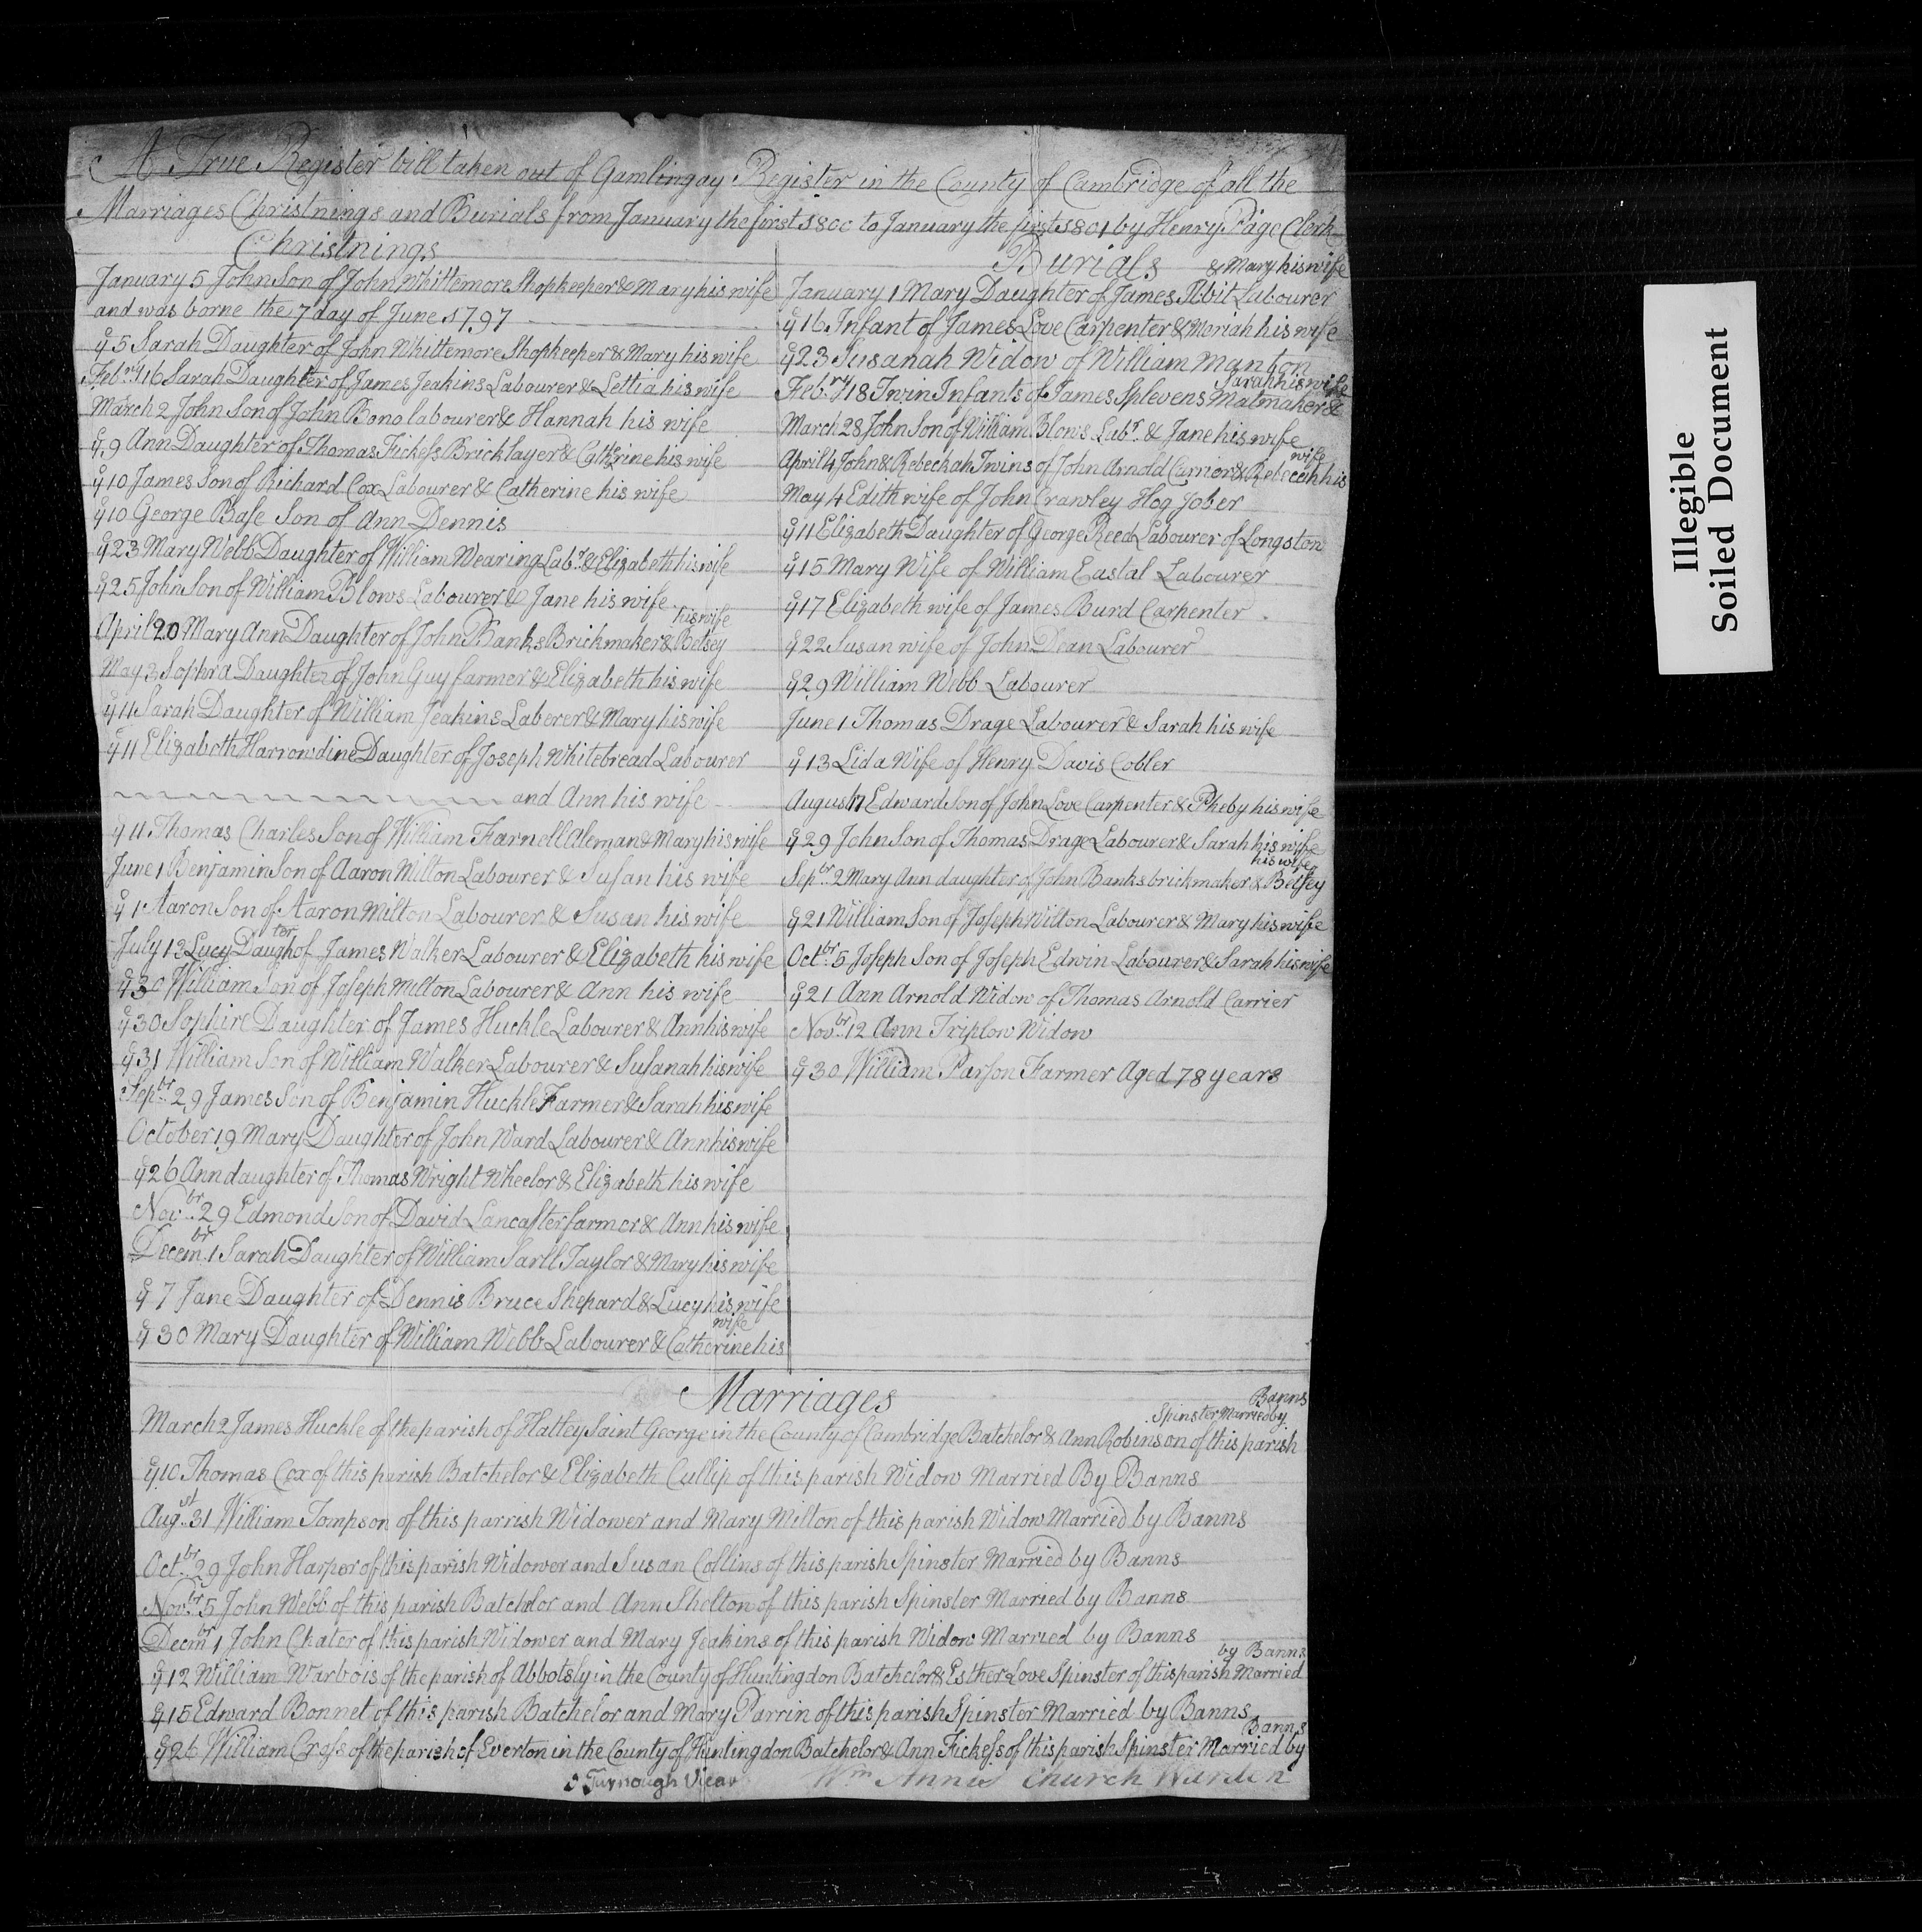 A True Register bill taken out of Gamlingay Register in the County of Cambridge of all the
Marriages Christnings and Burials from January the first 1800 to January the first 1801 by Henry Page Clerk
Christnings
January 5 John Son of John Whittemore Shopkeeper & Mary his wife
and was borne the 7 day of June 1797
ye 5 Sarah Daughter of John Whittemore Shopkeeper & Mary his wife
Febry 16 Sarah Daughter of James Jeakins Labourer & Lettia his wife
March 2 John Son of John Bono labourer & Hannah his wife
ye 9 Ann Daughter of Thomas Fickess Bricklayer & Cathrine his wife
ye 10 James Son of Richard Cox Labourer & Catherine his wife
ye 10 George Base Son of Ann Dennis
ye 23 Mary Webb Daughter of William Wearing Labr & Elizabeth his wife
ye 25 John Son of William Blows Labourer & Jane his wife
his wife
April 20 Mary Ann Daughter of John Banks Brickmaker & Betsey
May 3 Sophia Daughter of John Guy farmer & Elizabeth his wife
ye 11 Sarah Daughter of William Jeakins Laberer & Mary his wife
ye 11 Elizabeth Harrowdine Daughter of Joseph Whitebread Labourer
and Ann his wife
ye 11 Thomas Charles Son of William Farnell Aleman & Mary his wife
June 1 Benjamin Son of Aaron Milton Labourer & Susan his wife
ye 1 Aaron Son of Aaron Milton Labourer & Susan his wife
July 13 Lucy Daughter of James Walker Labourer & Elizabeth his wife
ye 30 William Son of Joseph Milton Labourer & Ann his wife
ye 30 Sophire Daughter of James Huckle Labourer & Ann his wife
ye 31 William Son of William Walker Labourer & Susanah his wife
Sepbr 29 James Son of Benjamin Huckle Farmer & Sarah his wife
October 19 Mary Daughter of John Ward Labourer & Ann his wife
ye 26 Ann daughter of Thomas Wright Wheelor & Elizabeth his wife
Novbr 29 Edmond Son of David Lancaster farmer & Ann his wife
Decembr 1 Sarah Daughter of William Sarll Taylor & Mary his wife
ye 7 Jane Daughter of Dennis Bruce Shepard & Lucy his wife
wife
ye 30 Mary Daughter of William Webb Labourer & Catherine his
Burials
& Mary his wife
January 1 Mary Daughter of James Ibbit Labourer
ye 16 Infant of James Love Carpenter & Moriah his wife
ye 23 Susanah Widow of William Manton
Sarah his wife
Febry 18 Twin Infants of James Splevens Matmaker &
March 28 John Son of William Blows Labr & Jane his wife
wife
April 4 John & Rebeckah Twins of John Arnold Carrior & Rebeccah his
May 4 Edith wife of John Crawley Hog Jober
ye 11 Elizabeth Daughter of George Reed Labourer of Longston
ye 15 Mary Wife of William Eastal Labourer
ye 17 Elizabeth wife of James Burd Carpenter
ye 22 Susan wife of John Dean Labourer
ye 29 William Webb Labourer
June 1 Thomas Drage Labourer & Sarah his wife
ye 13 Lida Wife of Henry Davis Cobler
August 17 Edward Son of John Love Carpenter & Pheby his wife
ye 29 John Son of Thomas Drage Labourer & Sarah his wife
his wife
Sepbr 2 Mary Ann daughter of John Banks brickmaker & Betsey
ye 21 William Son of Joseph Wilton Labourer & Mary his wife
Octbr 5 Joseph Son of Joseph Edwin Labourer & Sarah his wife
ye 21 Ann Arnold Widow of Thomas Arnold Carrier
Novbr 12 Ann Triplow Widow
ye 30 William Parson Farmer Aged 78 years
Marriages
Banns
Spinster Married by
March 2 James Huckle of the parish of Hatley Saint George in the County of Cambridge Batchelor & Ann Robinson of this parish
ye 10 Thomas Cox of this parish Batchelor & Elizabeth Cullip of this parish Widow Married By Banns
Augst 31 William Tompson of this parrish Widower and Mary Milton of this parish Widow Married by Banns
Octbr 29 John Harper of this parish Widower and Susan Collins of this parish Spinster Married by Banns
Novbr 5 John Webb of this parish Batchelor and Ann Shelton of this parish Spinster Married by Banns
Decmbr 1 John Chater of this parish Widower and Mary Jeakins of this parish Widow Married by Banns
by Banns
ye 12 William Warbois of the parish of Abbotsly in the County of Huntingdon Batchelor & Esther Love Spinster of this parish Married
ye 15 Edward Bonnet of this parish Batchelor and Mary Parrin of this parish Spinster Married by Banns
Banns
ye 26 William Cross of the parish of Everton in the County of Huntingdon Batchelor & Ann Fickess of this parish Spinster Married by
Turnough Vicar
Wm Annis Church Warden
Illegible
Soiled Document